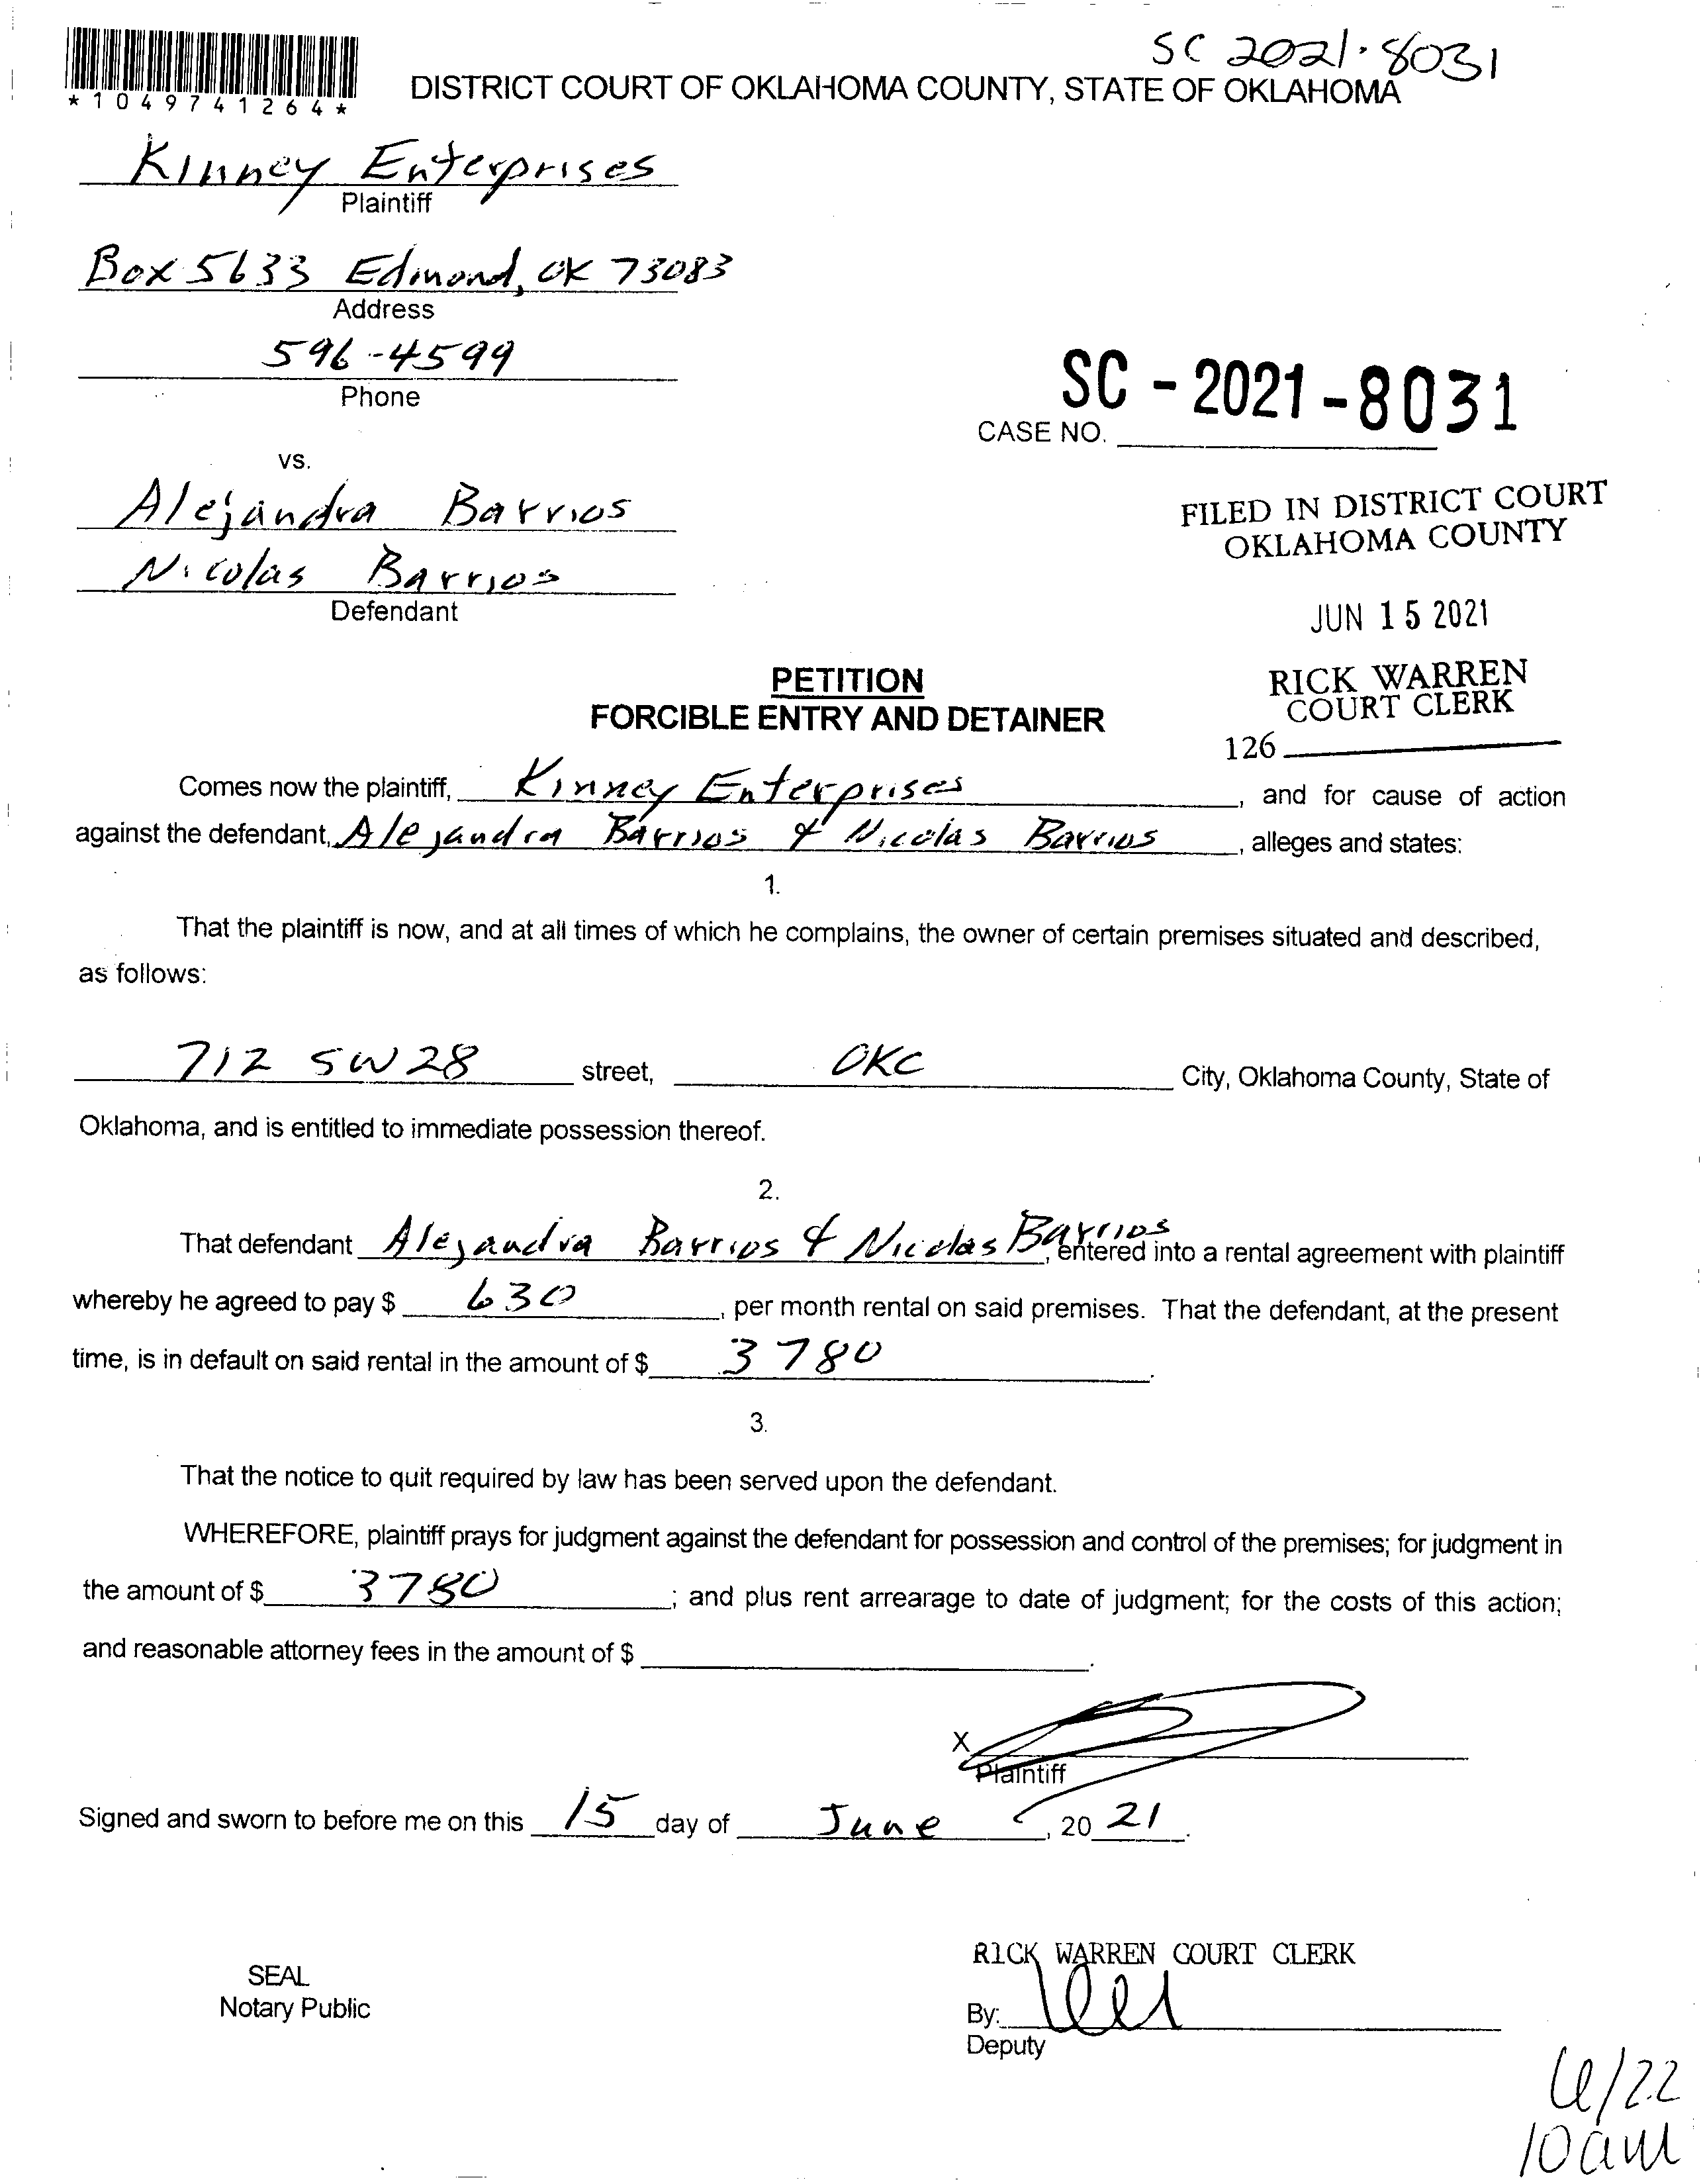 SC 2021-8031
*1049741264*
DISTRICT COURT OF OKLAHOMA COUNTY, STATE OF OKLAHOMA
Kinney Enterprises
Plaintiff
Box 5633 Edmond, OK 73083
Address
596-4599
Phone
SC-2021-8031
CASE NO.
vs.
Alejandra Barrios
Nicolas Barrios
Defendant
FILED IN DISTRICT COURT
OKLAHOMA COUNTY
JUN 15 2021
RICK WARREN
COURT CLERK
126
PETITION
FORCIBLE ENTRY AND DETAINER
Comes now the plaintiff, Kinney Enterprises, and for cause of action
against the defendant, Alejandra Barrios & Nicolas Barrios, alleges and states:
1.
That the plaintiff is now, and at all times of which he complains, the owner of certain premises situated and described,
as follows:
712 SW 28 street, OKC City, Oklahoma County, State of
Oklahoma, and is entitled to immediate possession thereof.
2.
That defendant Alejandra Barrios & Nicolas Barrios, entered into a rental agreement with plaintiff
whereby he agreed to pay $ 630, per month rental on said premises. That the defendant, at the present
time, is in default on said rental in the amount of $ 3780.
3.
That the notice to quit required by law has been served upon the defendant.
WHEREFORE, plaintiff prays for judgment against the defendant for possession and control of the premises; for judgment in
the amount of $ 3780; and plus rent arrearage to date of judgment; for the costs of this action;
and reasonable attorney fees in the amount of $ .
X
Plaintiff
Signed and sworn to before me on this 15 day of June, 20 21.
RICK WARREN COURT CLERK
SEAL
Notary Public
By:
Deputy
6/22
10am